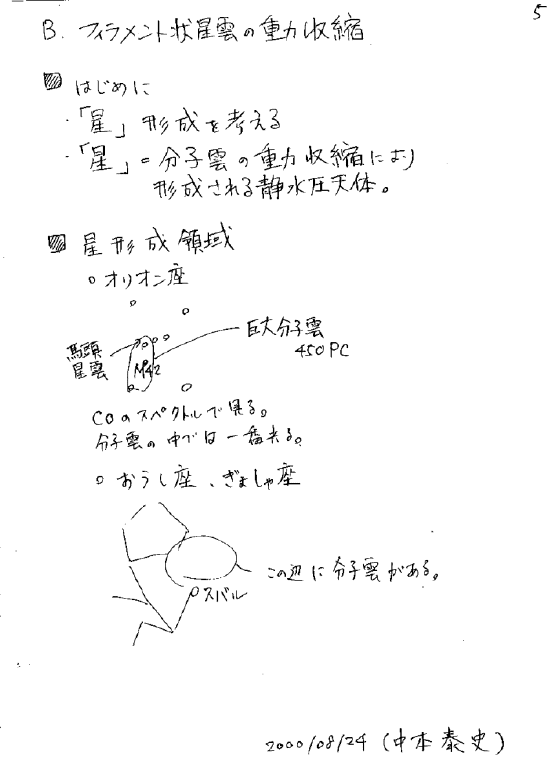 5
B. フィラメント状星雲の重力収縮
はじめに
・「星」形成を考える
・「星」=分子雲の重力収縮により
形成される静水圧天体。
星形成領域
○オリオン座
馬頭
星雲
M42
巨大分子雲
450PC
COのスペクトルで見る。
分子雲の中では一番
○おうし座、ぎょしゃ座
この辺に分子雲がある。
スバル
2000/08/24 (中本泰史)